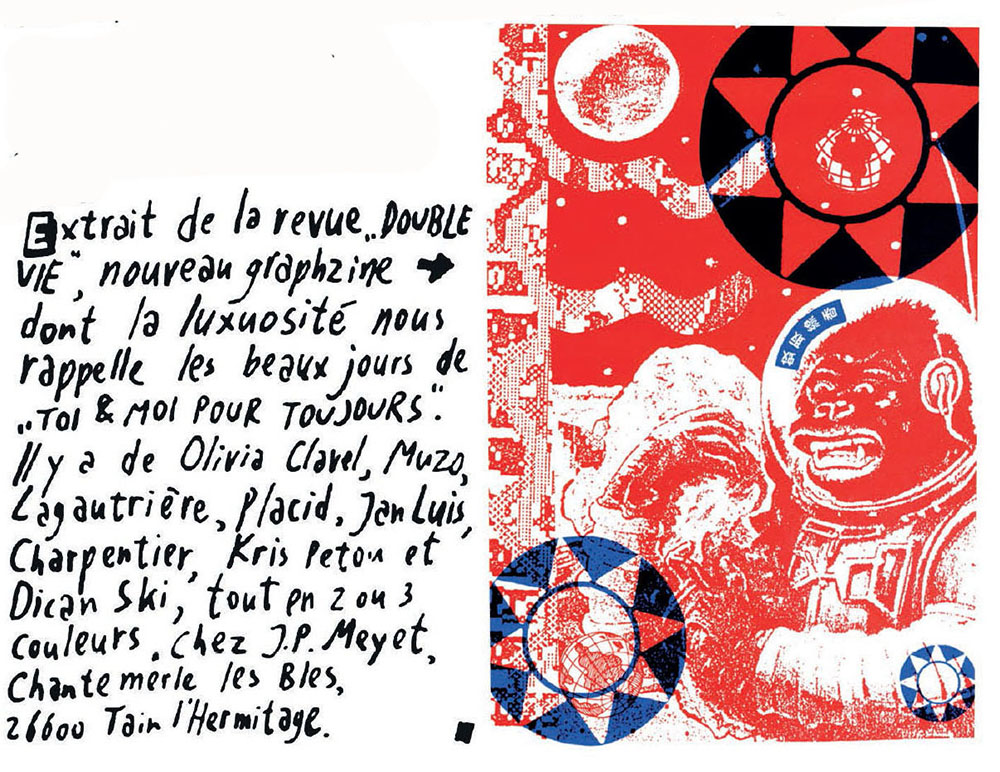 Extrait de la revue „DOUBLE
VIE", nouveau graphzine
dont la luxuosité nous
rappelle les beaux jours de
„TOI & MOI POUR TOUJOURS".
Il y a de Olivia Clavel, Muzo,
Lagautrière, Placid, Jan Luis,
Charpentier, Kris Peton et
Dican Ski, tout en 2 ou 3
couleurs. Chez J.P. Meyet,
Chantemerle les Bles,
26600 Tain l'Hermitage.